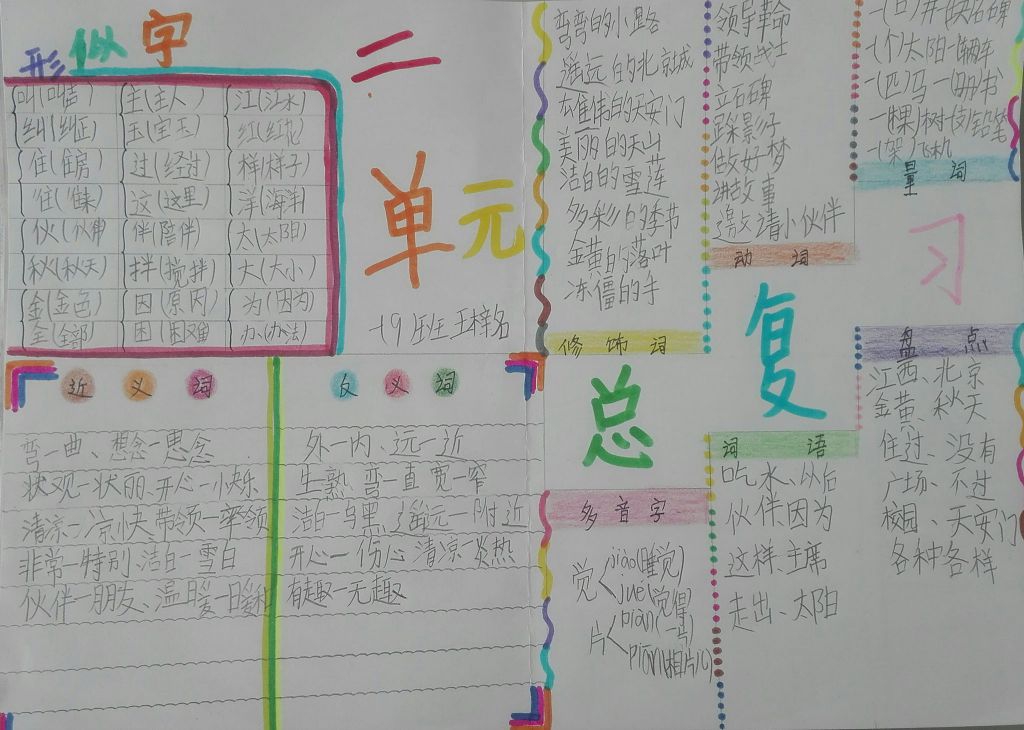 形似字
叫(叫声) 主(主人) 江(江水)
纠(纠正) 玉(宝玉) 红(红花)
住(住房) 过(经过) 样(样子)
往(往来) 这(这里) 洋(海洋)
伙(伙伴) 伴(陪伴) 太(太阳)
秋(秋天) 拌(搅拌) 大(大小)
金(金色) 因(原因) 为(因为)
全(全部) 困(困难) 办(办法)
二
单元
一(9)班 王梓名
近义词
弯—曲、想念—思念
状观—状丽、开心—快乐
清凉—凉快、带领—率领
非常—特别、洁白—雪白
伙伴—朋友、温暖—暖和
反义词
外—内、远—近
生—熟、弯—直、宽—窄
洁白—乌黑、遥远—附近
开心—伤心、清凉—炎热
有趣—无趣
弯弯的小路
遥远的北京城
雄伟的天安门
美丽的天山
洁白的雪莲
多彩的季节
金黄的落叶
冻僵的手
修饰词
总
多音字
觉 jiào(睡觉)
jué(觉得)
片 piàn(一片)
piān(相片儿)
领导革命
带领战士
立石碑
踩影子
做好梦
讲故事
邀请小伙伴
动词
复
词语
吃水、以后
伙伴、因为
这样、主席
走出、太阳
一(口)井 一(块)石碑
一(个)太阳 一(辆)车
一(匹)马 一(册)书
一(棵)树 一(支)铅笔
一(架)飞机
量词
习
盘点
江西、北京
金黄、秋天
住过、没有
广场、不过
校园、天安门
各种各样